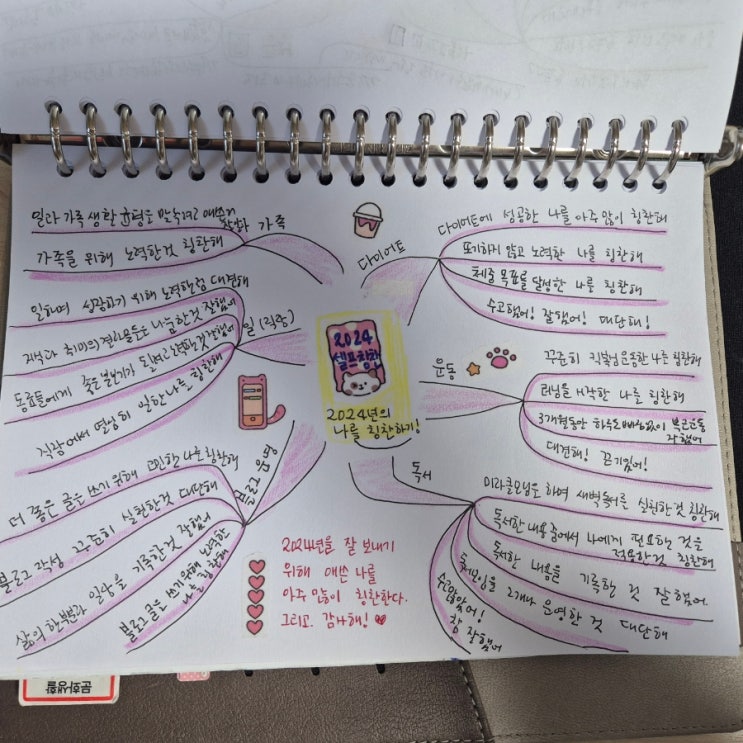 2024
셀프칭찬
2024년의
나를 칭찬하기!
다이어트
다이어트에 성공한 나를 아주 많이 칭찬해
포기하지 않고 노력한 나를 칭찬해
체중 목표를 달성한 나를 칭찬해
수고했어! 잘했어! 대단해!
운동
꾸준히 운동한 나를 칭찬해
러닝을 시작한 나를 칭찬해
3개월동안 하루도 빠짐없이 복근운동
잘했어
대견해! 끈기있어!
독서
미라클모닝을 하며 새벽독서를 실천한것 칭찬해
독서한 내용 중에서 나에게 필요한 것을
적용한것 칭찬해
독서한 내용을 기록한 것 잘했어
독서모임을 2개나 운영한 것 대단해
수고많았어!
참 잘했어
블로그 운영
더 좋은 글을 쓰기 위해 고민한 나를 칭찬해
블로그 작성 꾸준히 실천한것 대단해
삶의 한부분과 일상을 기록한것 잘했어
블로그 글을 쓰기위해 노력한
나를 칭찬해
일 (직장)
일하며 성장하기 위해 노력한점 대견해
동료들에게 좋은 분위기가 되려고 노력한것 잘했어
직장에서 열심히 일한 나를 칭찬해
가족
일과 가족 생활 균형을 맞추려고 애쓴거
가족을 위해 노력한것 칭찬해
2024년을 잘 보내기
위해 애쓴 나를
아주 많이 칭찬한다.
그리고 감사해!
문화생활